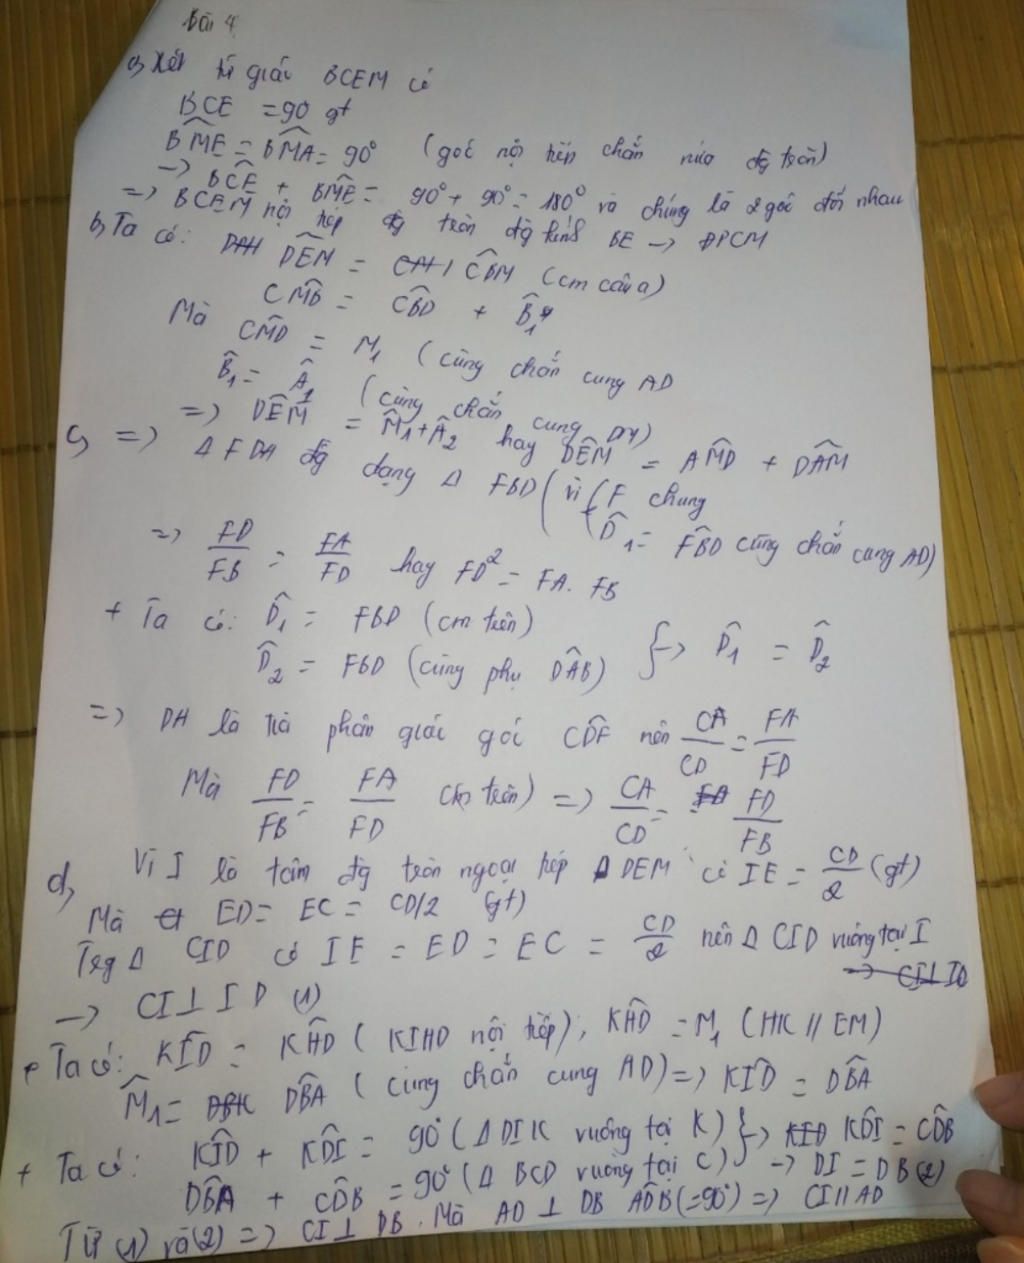 Bài 4
a, Xét tứ giác BCEM có
BCE = 90 gt
BM̂E = BM̂A = 90° (góc nội tiếp chắn nửa đg tròn)
→ BĈE + BM̂E = 90° + 90° = 180° và chúng là 2 góc đối nhau
=> BCEM nội tiếp đg tròn đg kính BE → ĐPCM
b, Ta có: DÊM = CB̂M (cm câu a)
CM̂B = CB̂D + B̂1
Mà CM̂D = M1 (cùng chắn cung AD
B̂1 = Â1 (cùng chắn cung DM)
=> DÊM = M̂1 + Â2 hay DÊM = AM̂D + DÂM
c, => Δ FDA đg dạng Δ FBD (vì F chung
D̂1 = FB̂D cùng chắn cung AD)
=> FD/FB = FA/FD hay FD² = FA. FB
+ Ta có: D̂1 = FBD (cm trên)
D̂2 = FBD (cùng phụ DÂB) } → D̂1 = D̂2
=> DA là tia phân giác góc CD̂F nên CA/CD = FA/FD
Mà FD/FB = FA/FD (cm trên) => CA/CD = FD/FB
d, Vì I là tâm đg tròn ngoại tiếp Δ DEM có IE = CD/2 (gt)
Mà ED = EC = CD/2 (gt)
Trg Δ CID có IE = ED = EC = CD/2 nên Δ CID vuông tại I
→ CI ⊥ ID (1)
+ Ta có: KÎD = KĤD (KIHD nội tiếp), KĤD = M1 (HK // EM)
M̂1 = DB̂A (cùng chắn cung AD) => KÎD = DB̂A
+ Ta có: KÎD + KD̂I = 90° (Δ DIK vuông tại K) } → KD̂I = CD̂B
DB̂A + CD̂B = 90° (Δ BCD vuông tại C) → DI ≡ DB (2)
Từ (1) và (2) => CI ⊥ DB. Mà AD ⊥ DB AD̂B (=90°) => CI // AD